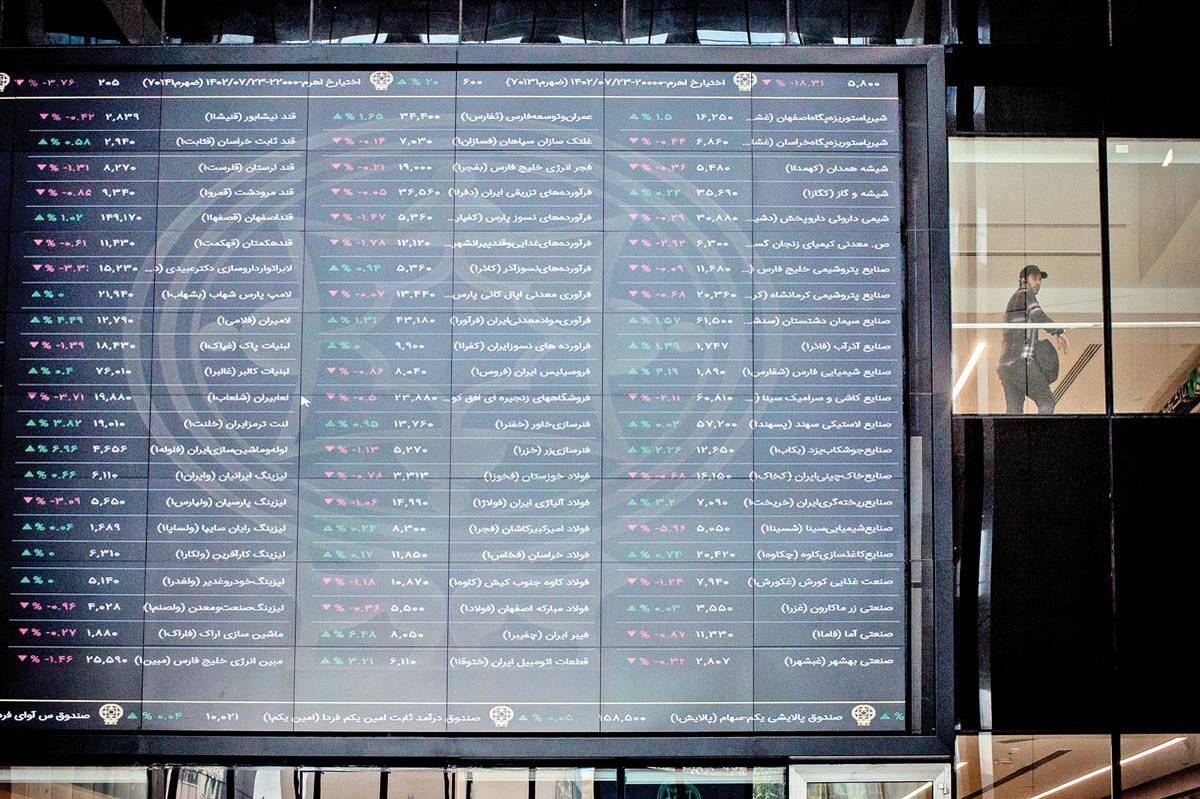 ۵,۸۰۰ ▼ % -۱۸.۳۱ اختیارخ اهرم-۲۰۰۰۰-۱۴۰۲/۰۷/۲۳ (ضهرم۷۰۱۳۱) ۶۰۰ ▲ % ۲۰ اختیارخ اهرم-۲۲۰۰۰-۱۴۰۲/۰۷/۲۳ (ضهرم۷۰۱۴۱) ۲۰۵ ▼ % -۳.۷۶
شیرپاستوریزه‌پگاه‌اصفهان (غشـ... ۱۶,۲۵۰ ▲ % ۱.۵ عمران‌وتوسعه‌فارس (ثفارس۱) ۳۴,۴۰۰ ▲ % ۱.۶۵ قند نیشابور (قنیشا۱) ۲,۸۳۹ ▼ % -۰.۴۲
شیرپاستوریزه‌پگاه‌خراسان (غشا... ۶,۸۶۰ ▼ % -۰.۴۴ غلتک سازان سپاهان (فسازان۱) ۷,۰۳۰ ▼ % -۰.۱۴ قند ثابت خراسان (قثابت۱) ۲,۹۴۰ ▲ % ۰.۵۸
شیشه همدان (کهمدا۱) ۵,۴۸۰ ▼ % -۰.۳۶ فجر انرژی خلیج فارس (بفجر۱) ۱۹,۰۰۰ ▼ % -۰.۲۱ قند لرستان (قلرست۱) ۸,۲۷۰ ▼ % -۱.۳۱
شیشه و گاز (کگاز۱) ۳۵,۶۹۰ ▲ % ۰.۲۲ فرآورده‌های تزریقی ایران (دفرا۱) ۳۶,۵۶۰ ▼ % -۰.۰۵ قند مرودشت (قمرو۱) ۹,۳۴۰ ▼ % -۰.۸۵
شیمی داروئی داروپخش (دشیـ... ۳۰,۸۸۰ ▼ % -۰.۲۹ فرآورده‌های نسوز پارس (کفپار... ۵,۳۶۰ ▼ % -۱.۴۷ قنداصفهان (قصفها۱) ۱۴۹,۱۷۰ ▲ % ۱.۰۲
ص. معدنی کیمیای زنجان گسـ... ۶,۳۰۰ ▼ % -۲.۹۲ فرآورده‌های‌غذایی‌وقندپیرانشهر... ۱۲,۱۲۰ ▼ % -۱.۷۸ قندهکمتان (قهکمت۱) ۱۱,۴۳۰ ▼ % -۰.۶۱
صنایع پتروشیمی خلیج فارس (... ۱۱,۶۸۰ ▼ % -۰.۰۹ فرآورده‌های‌نسوزآذر (کاذر۱) ۵,۳۶۰ ▲ % ۰.۹۴ لابراتوارداروسازی دکترعبیدی (د... ۱۵,۲۳۰ ▼ % -۳.۳
صنایع پتروشیمی کرمانشاه (کر... ۲۰,۳۶۰ ▼ % -۰.۶۸ فرآوری معدنی اپال کانی پارس... ۱۳,۴۴۰ ▼ % -۰.۰۷ لامپ پارس شهاب (بشهاب۱) ۲۱,۹۴۰ ▲ % ۰
صنایع سیمان دشتستان (سدشـ... ۶۱,۵۰۰ ▲ % ۱.۵۷ فرآوری‌موادمعدنی‌ایران (فرآور۱) ۴۳,۱۸۰ ▲ % ۱.۳۱ لامیران (فلامی۱) ۱۲,۷۹۰ ▲ % ۴.۴۹
صنایع آذرآب (فاذر۱) ۱,۷۴۷ ▲ % ۱.۳۹ فراورده های نسوزایران (کفرا۱) ۹,۹۰۰ ▲ % ۰ لبنیات پاک (غپاک۱) ۱۸,۴۳۰ ▼ % -۱.۳۹
صنایع شیمیایی فارس (شفارس۱) ۱,۸۹۰ ▲ % ۴.۱۹ فروسیلیس ایران (فروس۱) ۸,۰۴۰ ▼ % -۰.۸۶ لبنیات کالبر (غالبر۱) ۷۶,۰۱۰ ▲ % ۰.۴
صنایع کاشی و سرامیک سینا (... ۶۰,۸۱۰ ▼ % -۲.۱۱ فروشگاههای زنجیره ای افق کو... ۲۳,۸۸۰ ▼ % -۰.۵ لعابیران (شلعاب۱) ۱۹,۸۸۰ ▼ % -۳.۷۱
صنایع لاستیکی سهند (پسهند۱) ۵۷,۲۰۰ ▲ % ۰.۰۲ فنرسازی‌خاور (خفنر۱) ۱۳,۷۶۰ ▲ % ۰.۹۵ لنت ترمزایران (خلنت۱) ۱۹,۰۱۰ ▲ % ۳.۸۲
صنایع‌جوشکاب‌یزد (بکاب۱) ۱۲,۶۵۰ ▲ % ۲.۲۶ فنرسازی‌زر (خزر۱) ۵,۲۷۰ ▼ % -۱.۱۳ لوله‌وماشین‌سازی‌ایران (فلوله۱) ۴,۶۵۶ ▲ % ۶.۹۶
صنایع‌خاک‌چینی‌ایران (کخاک۱) ۱۶,۱۵۰ ▼ % -۰.۶۸ فولاد خوزستان (فخوز۱) ۳,۳۱۳ ▼ % -۰.۷۸ لیزینگ ایرانیان (وایران۱) ۶,۱۱۰ ▲ % ۰.۶۶
صنایع‌ریخته‌گری‌ایران (خریخت۱) ۷,۰۹۰ ▲ % ۳.۲ فولاد آلیاژی ایران (فولاژ۱) ۱۴,۹۹۰ ▼ % -۱.۰۶ لیزینگ پارسیان (ولپارس۱) ۵,۶۵۰ ▼ % -۳.۰۹
صنایع‌شیمیایی‌سینا (شسینا۱) ۵,۰۵۰ ▼ % -۵.۹۶ فولاد امیرکبیرکاشان (فجر۱) ۸,۳۰۰ ▲ % ۰.۲۴ لیزینگ رایان سایپا (ولساپا۱) ۱,۶۸۹ ▲ % ۰.۰۶
صنایع‌کاغذسازی‌کاوه (چکاوه۱) ۲۰,۴۲۰ ▲ % ۰.۷۴ فولاد خراسان (فخاس۱) ۱۱,۸۵۰ ▲ % ۰.۱۷ لیزینگ کارآفرین (ولکار۱) ۶,۳۱۰ ▲ % ۰
صنعت غذایی کورش (غکورش۱) ۷,۹۴۰ ▼ % -۱.۲۴ فولاد کاوه جنوب کیش (کاوه۱) ۱۰,۸۷۰ ▼ % -۱.۱۸ لیزینگ‌خودروغدیر (ولغدر۱) ۵,۱۴۰ ▲ % ۰
صنعتی زر ماکارون (غزر۱) ۳,۵۵۰ ▲ % ۰.۰۳ فولاد مبارکه اصفهان (فولاد۱) ۵,۵۰۰ ▼ % -۰.۳۶ لیزینگ‌صنعت‌ومعدن (ولصنم۱) ۴,۰۲۸ ▼ % -۰.۹۶
صنعتی آما (فاما۱) ۱۱,۳۳۰ ▼ % -۰.۸۷ فیبر ایران (چفیبر۱) ۸,۰۵۰ ▲ % ۶.۴۸ ماشین سازی اراک (فاراک۱) ۱,۸۸۰ ▼ % -۰.۲۷
صنعتی بهشهر (غبشهر۱) ۲,۸۰۷ ▼ % -۰.۳۲ قطعات اتومبیل ایران (ختوقا۱) ۶,۱۱۰ ▲ % ۳.۲۱ مبین انرژی خلیج فارس (مبین۱) ۲۵,۵۹۰ ▼ % -۱.۴۶
▲ % صندوق پالایشی یکم-سهام (پالایش۱) ۱۵۸,۵۰۰ ▲ % ۰.۰۵ صندوق درآمد ثابت امین یکم فردا (امین یکم۱) ۱۰,۰۲۱ ▲ % ۰.۰۴ صندوق س آوای فرد